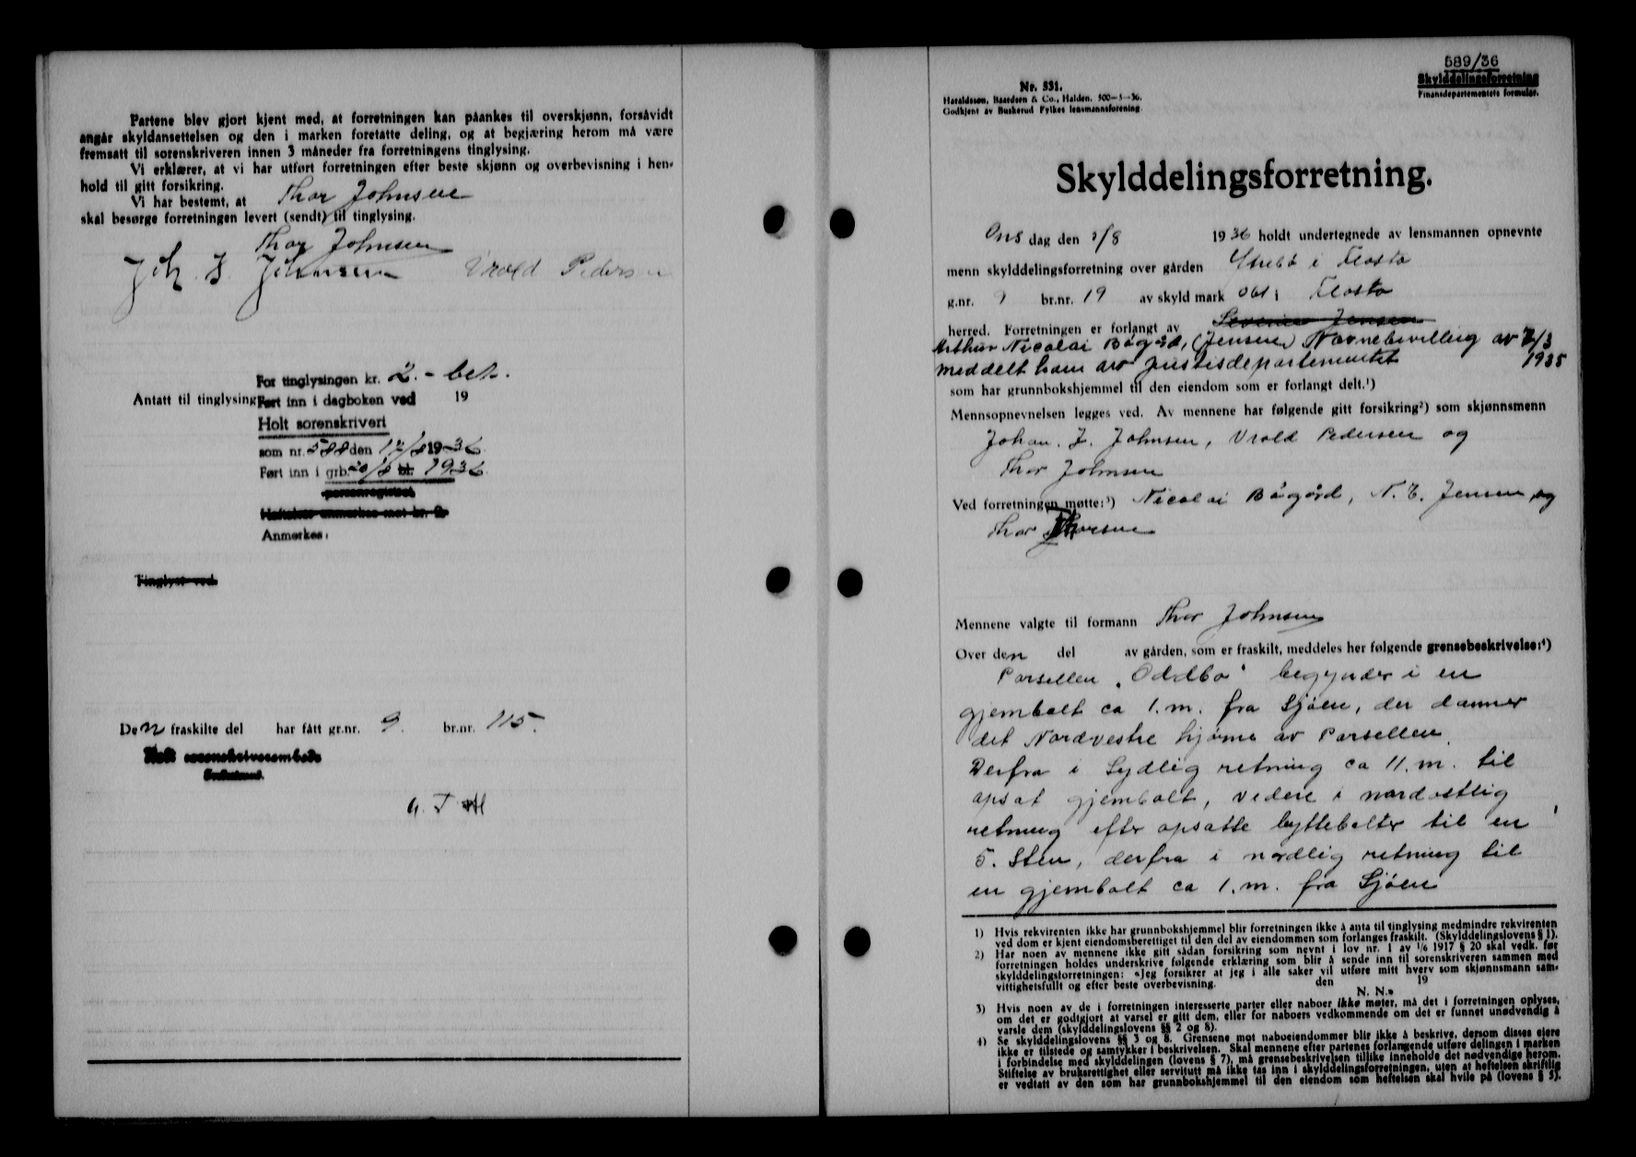 Partene blev gjort kjent med, at forretningen kan påankes til overskjønn, forsåvidt
angår skyldansettelsen og den i marken foretatte deling, og at begjæring herom må være
fremsatt til sorenskriveren innen 3 måneder fra forretningens tinglysing.
Vi erklærer, at vi har utført forretningen efter beste skjønn og overbevisning i hen-
hold til gitt forsikring.
Vi har bestemt, at Thor Johnsen
skal besørge forretningen levert (sendt) til tinglysing.
Thor Johnsen
Joh. J. Johnsen Vrold Pedersen
For tinglysingen kr. 2.- bet.
Antatt til tinglysing
Ført inn i dagboken ved 19
Holt sorenskriveri
som nr. 589 den 12/8 1936
Ført inn i grb. 20/8 bl. 1936
personregistret
Heftelser anmerkes mot kr. 2.
Anmerkes:
Tinglyst ved.
Den fraskilte del har fått gr.nr. 9. br.nr. 115.
Holt sorenskriverembede
589/36
Skylddelingsforretning
Finansdepartementets formular.
Nr. 531.
Haraldssøn, Baardsen & Co., Halden. 500—5—36.
Godkjent av Buskerud Fylkes lensmannsforening.
Skylddelingsforretning.
Ons dag den 5/8 1936 holdt undertegnede av lensmannen opnevnte
menn skylddelingsforretning over gården i Flosta
g.nr. 9 br.nr. 19 av skyld mark 061 i Flosta
herred. Forretningen er forlangt av Severin Jensen
Arthur Nicolai Bågård, (Jensen) Navnebevilling av 7/3
meddelt ham av Justisdepartementet 1935
som har grunnbokshjemmel til den eiendom som er forlangt delt.¹)
Mennsopnevnelsen legges ved. Av mennene har følgende gitt forsikring²) som skjønnsmenn
Johan. J. Johnsen, Vrold Pedersen og
Thor Johnsen
Ved forretningen møtte:³) Nicolai Bågård, N. E. Jensen, og
Thor Thorsen
Mennene valgte til formann Thor Johnsen
Over den del av gården, som er fraskilt, meddeles her følgende grensebeskrivelse:⁴)
Parsellen "Oddbo" begynder i en
gjembolt ca 1. m. fra Sjöen, der danner
det Nordvestre hjörne av Parsellen.
Derfra i Sydlig retning ca 11. m. til
opsat gjembolt, videre i nordostlig
retning efter opsatte byttebolter til en
5. Sten, derfra i nordlig retning til
en gjembolt ca 1. m. fra Sjöen
1) Hvis rekvirenten ikke har grunnbokshjemmel blir forretningen ikke å anta til tinglysing medmindre rekvirenten
ved dom er kjent eiendomsberettiget til den del av eiendommen som forlanges fraskilt. (Skylddelingslovens § 1).
2) Har noen av mennene ikke gitt sådan forsikring som nevnt i lov nr. 1 av 1/6 1917 § 20 skal vedk. før
forretningen holdes underskrive følgende erklæring som blir å sende inn til sorenskriveren sammen med
skylddelingsforretningen: «Jeg forsikrer at jeg i alle saker vil utføre mitt hverv som skjønnsmann sam-
vittighetsfullt og efter beste overbevisning. den 19
N. N.»
3) Hvis noen av de i forretningen interesserte parter eller naboer ikke møter, må det i forretningen oplyses,
om det er godtgjort at varsel er gitt dem, eller for naboers vedkommende om det er funnet unødvendig å
varsle dem (skylddelingslovens §§ 2 og 8).
4) Se skylddelingslovens §§ 3 og 8. Grensene mot naboeiendommer blir ikke å beskrive, dersom disses eiere
ikke er tilstede og samtykker i beskrivelsen. Skal mennene efter partenes forlangende utføre delingen i marken
i forbindelse med skylddelingen (lovens § 7), må grensebeskrivelsen tillike inneholde det nødvendige herom.
Stiftelse av bruksrettighet eller servitutt må ikke tas inn i skylddelingsforretningen, uten at heftelsen skriftlig
er vedtatt av den som har grunnbokshjemmel til den eiendom som heftelsen skal hvile på (lovens § 5).